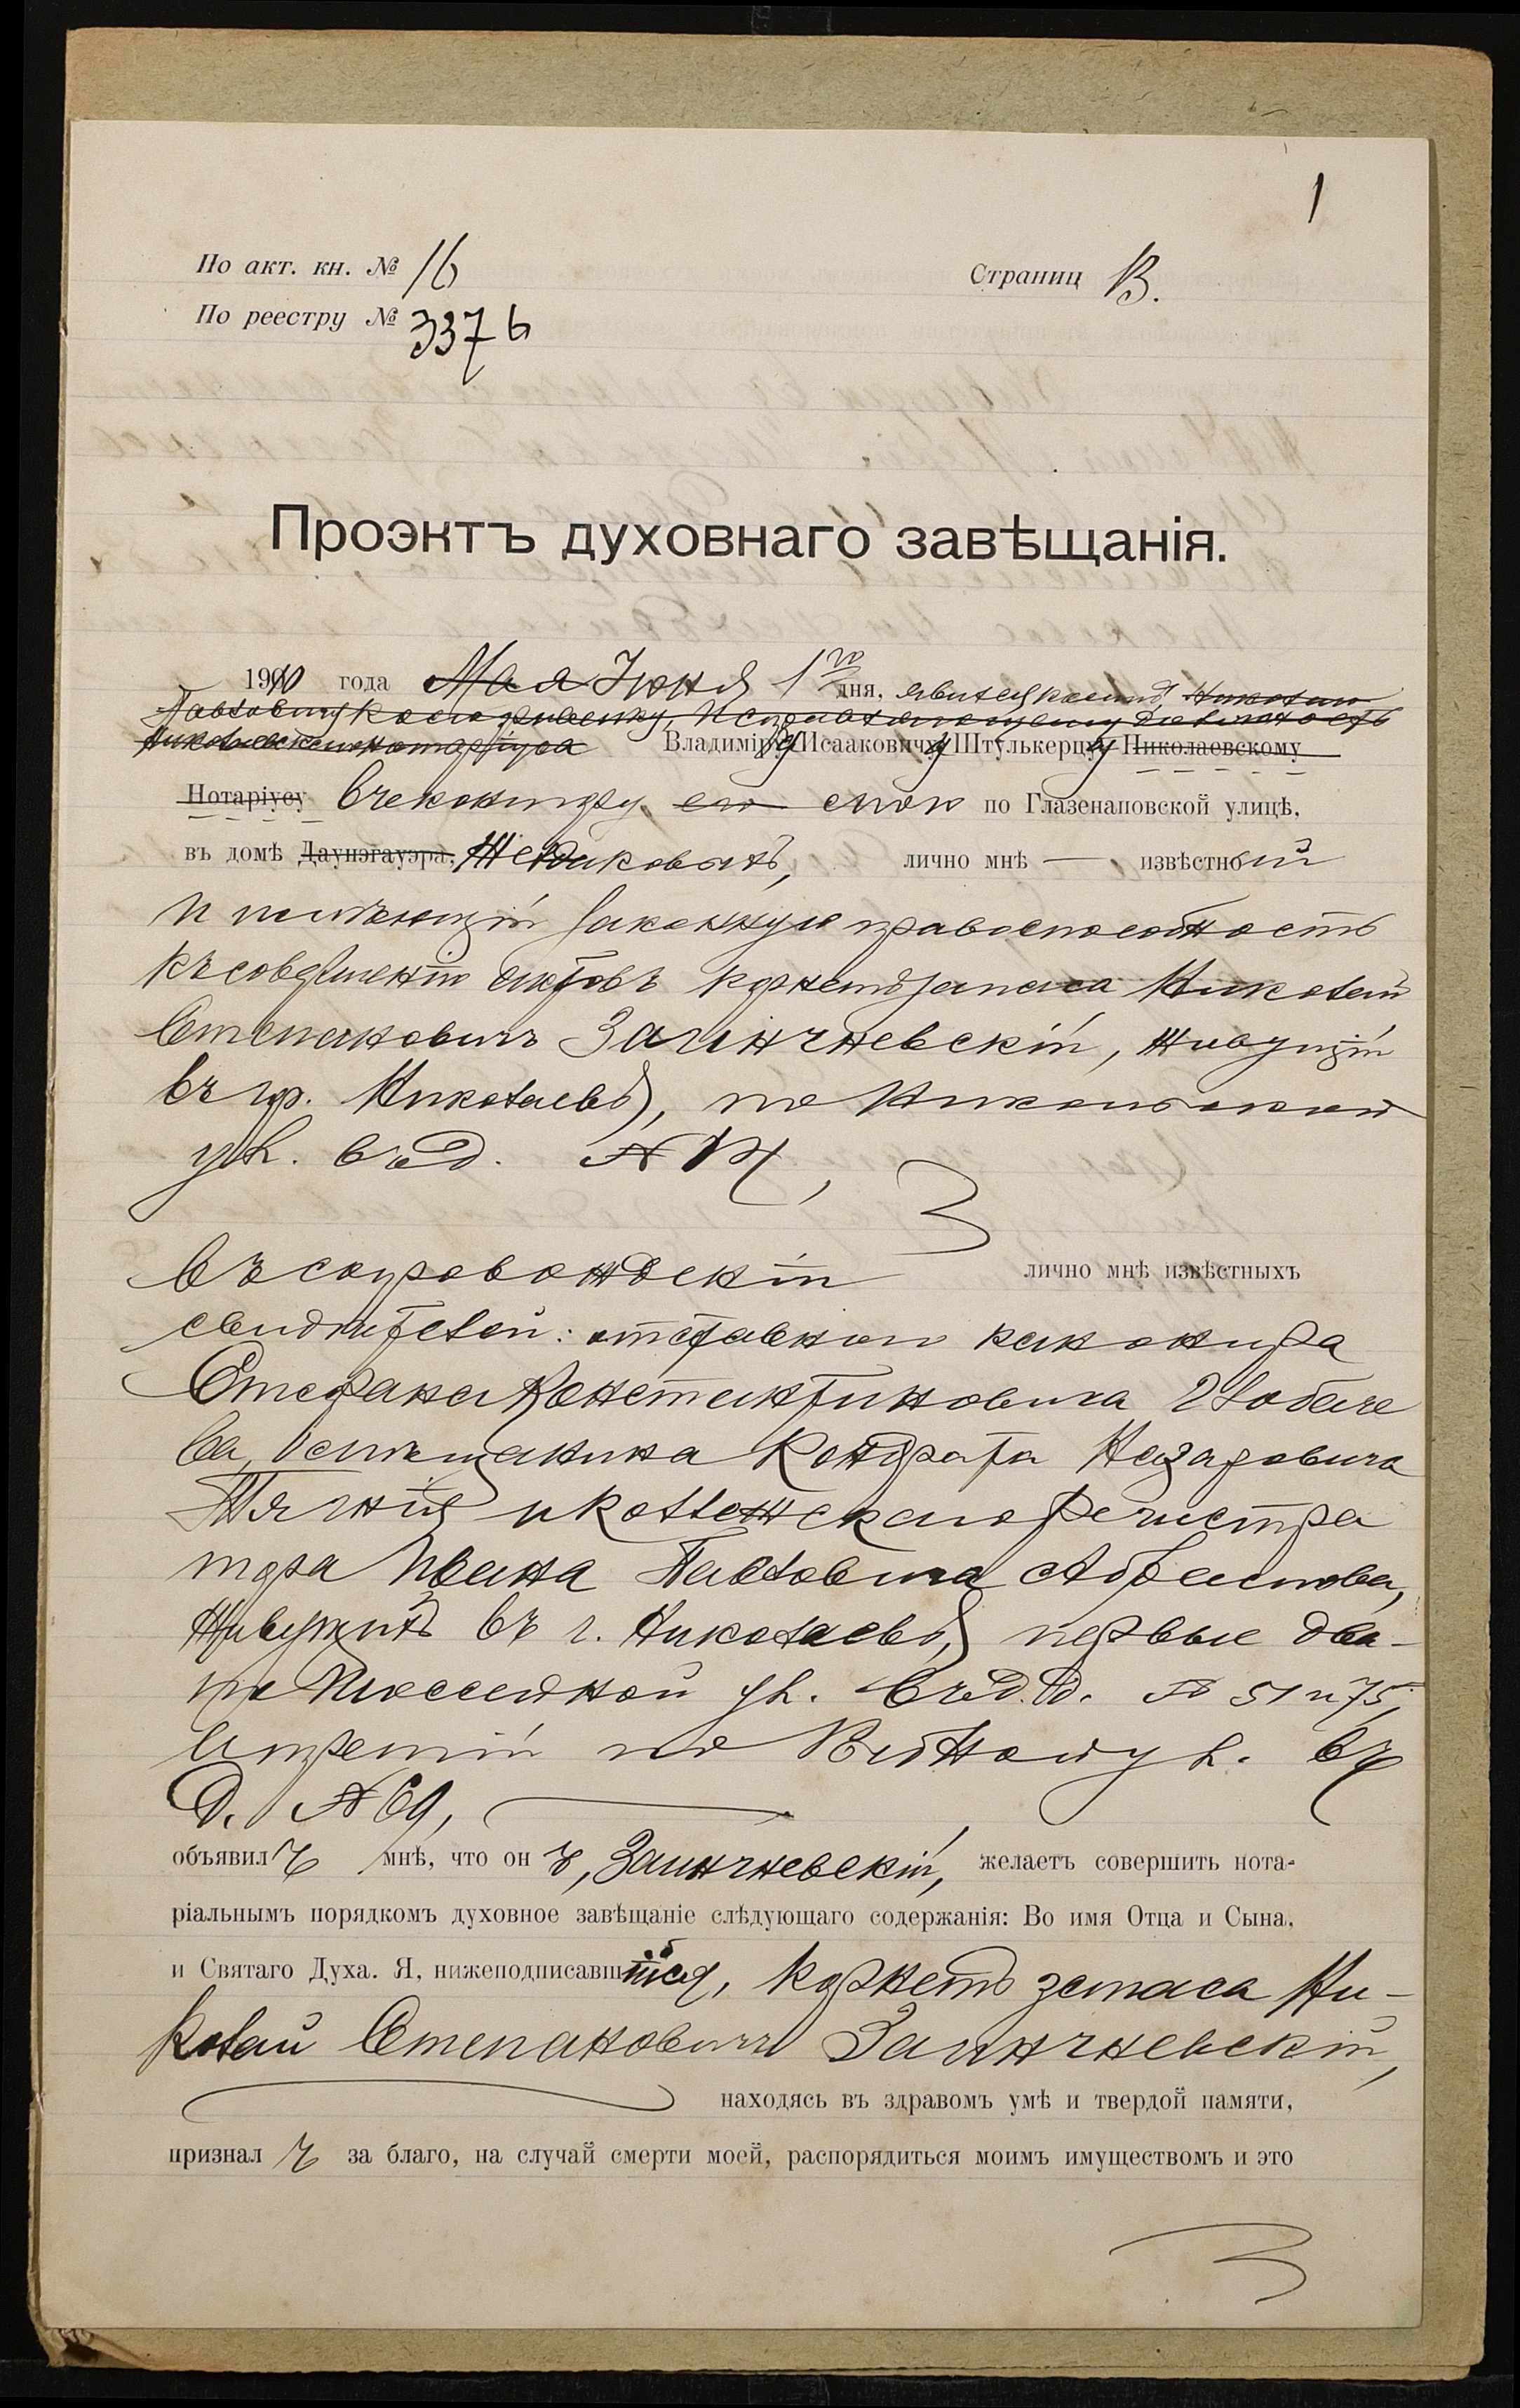 1
По акт. кн. № 16
Страниц
По реестру № 3376
Проэктъ духовнаго завѣщанія.
1910 года Мая Іюня 1го дня, явился ко мнѣ,
Павловичу исправляющему должность
Николаевскаго нотаріуса Владиміру Исааковичу Штулькерцу Николаевскому
Нотаріусу въ контору его мою по Глазенаповской улицѣ,
въ домѣ Даунэгауэра, лично мнѣ — извѣстный
и имѣющій законную правоспособность
къ совершенію актовъ корнетъ запаса Николай
Степановичъ Заинчневскій, живущій
въ гор. Николаевѣ, по Никольской
ул. въ д. №
въ сопровожденіи лично мнѣ извѣстныхъ
свидѣтелей: отставного канонира
Стефана Константиновича
ва, мѣщанина Кондрата Назаровича
и коллежскаго регистра
тора Ивана Павловича
живущихъ въ г. Николаевѣ, первые два
по Шоссейной ул. въ д.д. № 51 и 75,
а третій по ул. въ
д. № 69,
объявилъ мнѣ, что онъ, Заинчневскій, желаетъ совершить нота-
ріальнымъ порядкомъ духовное завѣщаніе слѣдующаго содержанія: Во имя Отца и Сына,
и Святаго Духа. Я, нижеподписавшійся, корнетъ запаса Ни-
колай Степановичъ Заинчневскій,
находясь въ здравомъ умѣ и твердой памяти,
призналъ за благо, на случай смерти моей, распорядиться моимъ имуществомъ и это